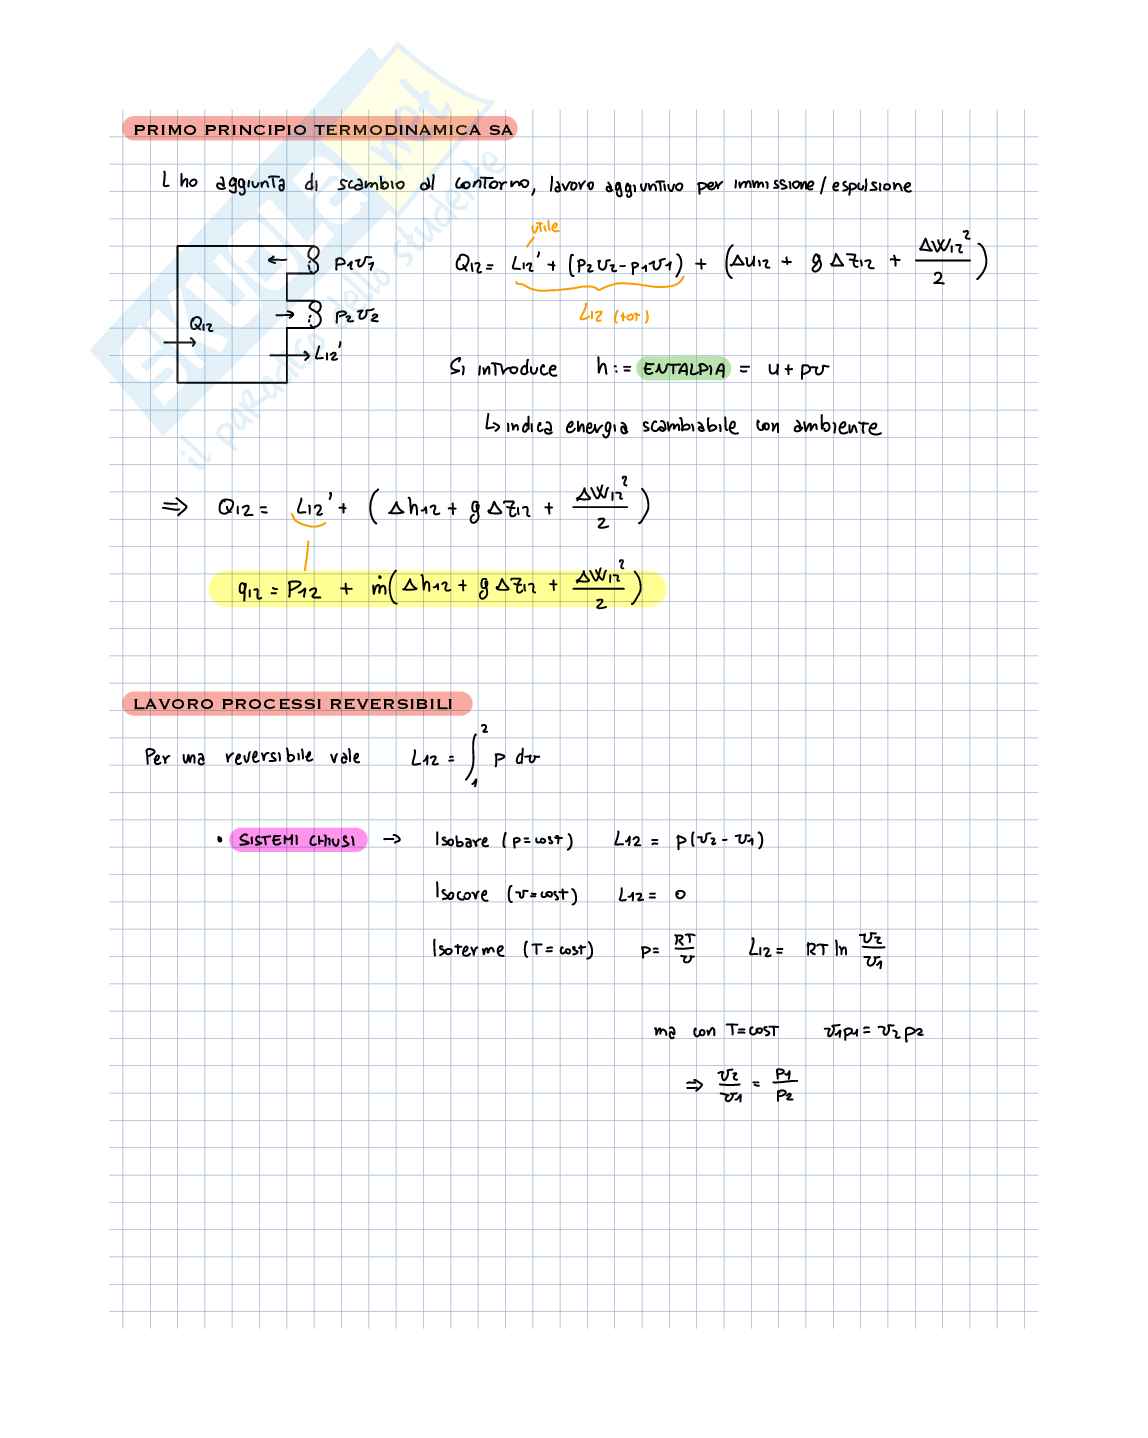 PRIMO PRINCIPIO TERMODINAMICA SA
L ho aggiunta di scambio al contorno, lavoro aggiuntivo per immissione / espulsione
utile
Q12 = L12' + (p2v2 - p1v1) + (Δu12 + g Δz12 + ΔW12²/2)
L12 (tot)
p1v1
p2v2
Q12
L12'
Si introduce h := ENTALPIA = u + pv
↳ indica energia scambiabile con ambiente
⇒ Q12 = L12' + (Δh12 + g Δz12 + ΔW12²/2)
q12 = P12 + ṁ(Δh12 + g Δz12 + ΔW12²/2)
LAVORO PROCESSI REVERSIBILI
Per una reversibile vale L12 = ∫₁² p dv
• SISTEMI CHIUSI → Isobare (p = cost) L12 = p(v2 - v1)
Isocore (v = cost) L12 = 0
Isoterme (T = cost) p = RT/v L12 = RT ln v2/v1
ma con T = cost v1p1 = v2p2
⇒ v2/v1 = p1/p2
SKUOLA.net
il paradiso dello studente